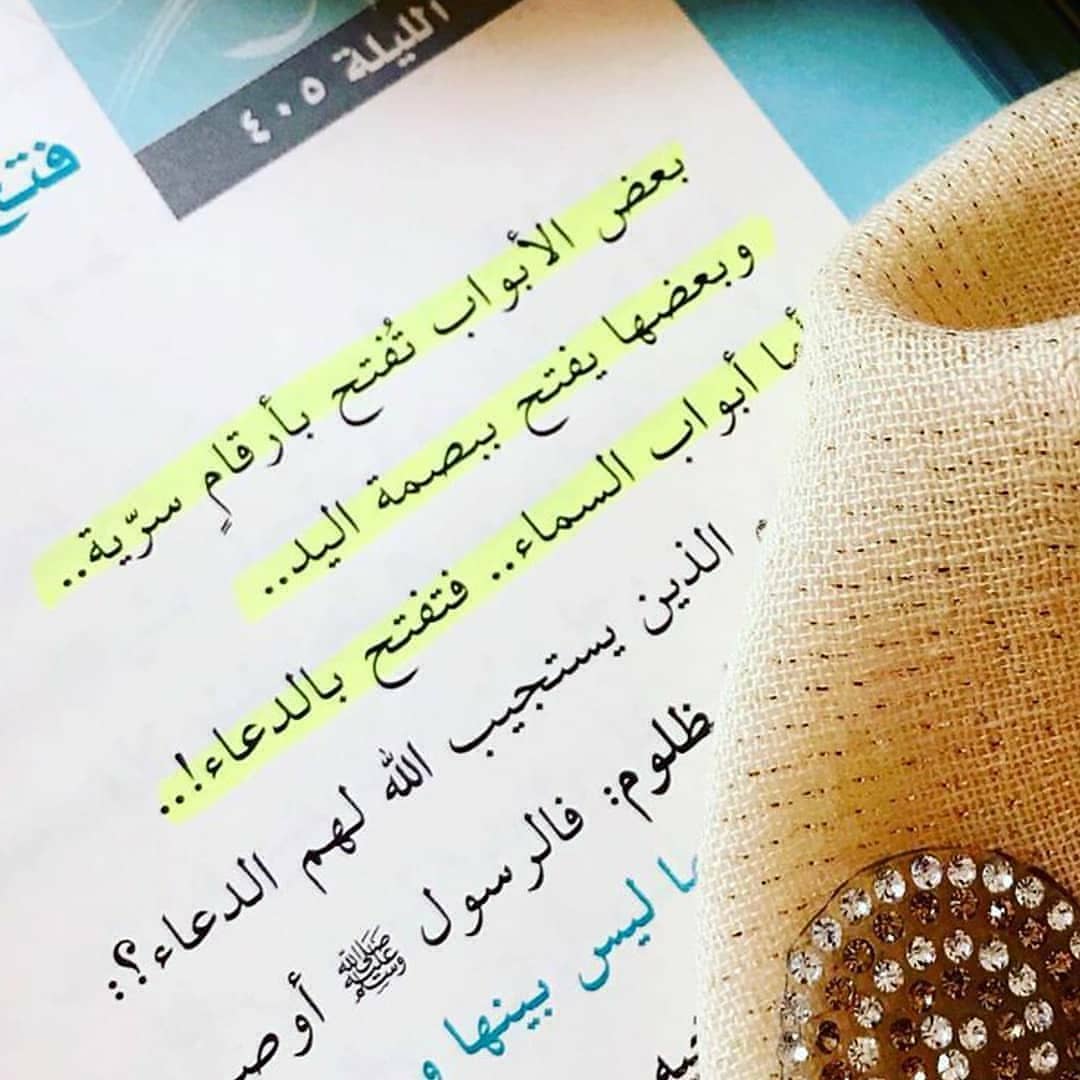 الليلة ٤٠٥
بعض الأبواب تُفتح بأرقامٍ سرّية..
وبعضها يفتح ببصمة اليد..
أما أبواب السماء.. فتفتح بالدعاء!..
الذين يستجيب الله لهم الدعاء؟:
فالرسول ﷺ
ليس بينها